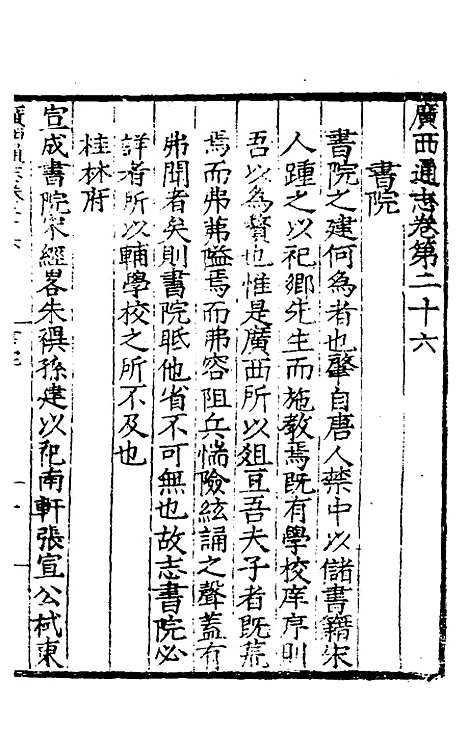 廣西通志卷第二十六
書院
書院之建何為者也肇自唐人禁中以儲書籍宋
人踵之以祀鄉先生而施教焉既有學校庠序則
吾以為贅也惟是廣西所以俎豆吾夫子者既荒
焉而弗茀隘焉而弗容阻兵惴險絃誦之聲蓋有
弗聞者矣則書院眡他省不可無也故志書院必
詳者所以輔學校之所不及也
桂林府
宣成書院宋經畧朱禩孫建以祀南軒張宣公栻東